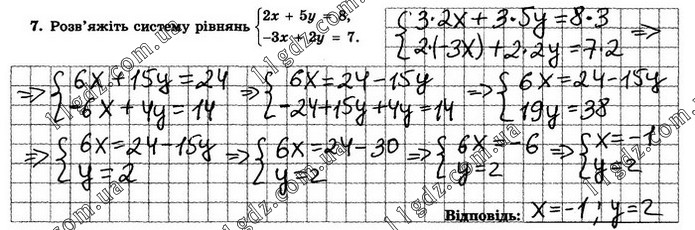 7. Розв'яжіть систему рівнянь { 2x + 5y = 8, −3x + 2y = 7. { 3·2x + 3·5y = 8·3 2·(−3x) + 2·2y = 7·2 =>
=> { 6x + 15y = 24 −6x + 4y = 14 => { 6x = 24 − 15y −24 + 15y + 4y = 14 => { 6x = 24 − 15y 19y = 38
=> { 6x = 24 − 15y y = 2 => { 6x = 24 − 30 y = 2 => { 6x = −6 y = 2 => { x = −1 y = 2
Відповідь: x = −1 ; y = 2
11gdz.com.ua